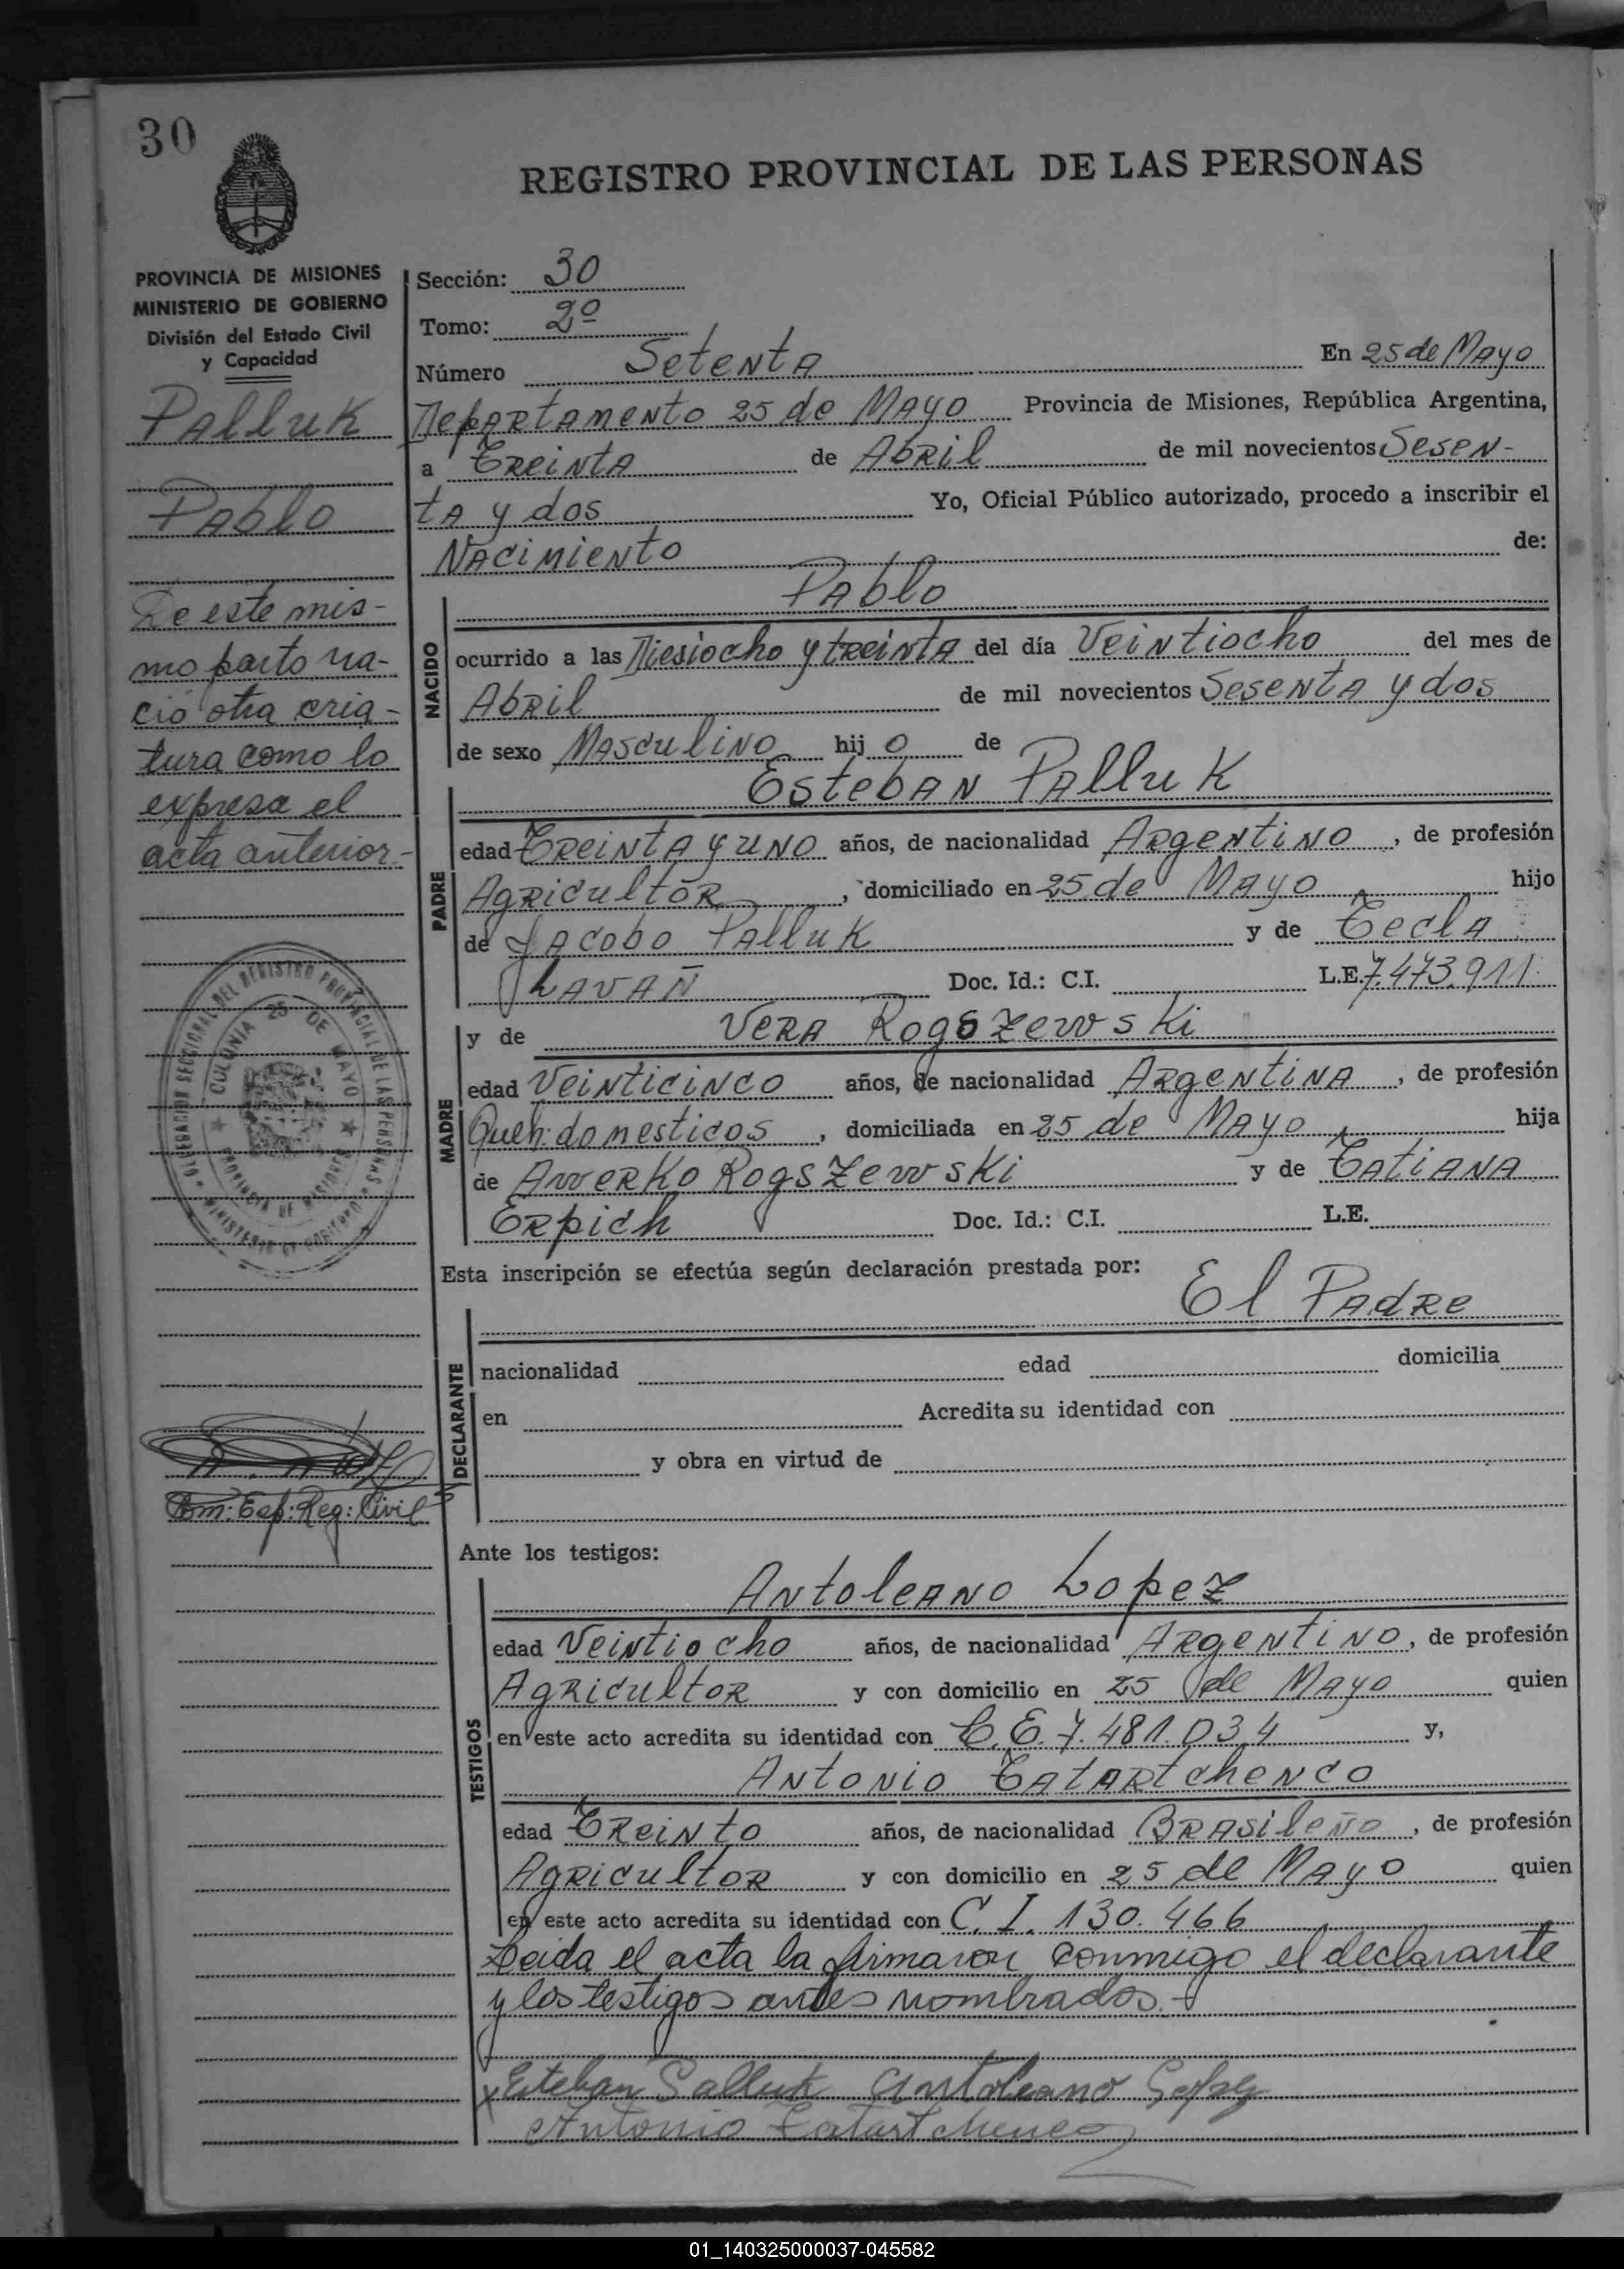 30
REGISTRO PROVINCIAL DE LAS PERSONAS
PROVINCIA DE MISIONES
MINISTERIO DE GOBIERNO
División del Estado Civil
y Capacidad
Palluk
Pablo
De este mis-
mo parto na-
ció otra cria-
tura como lo
expresa el
acta anterior.-
DELEGACION SECCIONAL DEL REGISTRO PROVINCIAL DE LAS PERSONAS
COLONIA 25 DE MAYO
PROVINCIA DE MISIONES
MINISTERIO DE GOBIERNO
Reg: Civil
Sección: 30
Tomo: 2º
Número Setenta En 25 de Mayo
Departamento 25 de Mayo Provincia de Misiones, República Argentina,
a Treinta de Abril de mil novecientos Sesen-
ta y dos Yo, Oficial Público autorizado, procedo a inscribir el
Nacimiento de:
Pablo
NACIDO
ocurrido a las Diesiocho y treinta del día Veintiocho del mes de
Abril de mil novecientos Sesenta y dos
de sexo Masculino hijo de
Esteban Palluk
PADRE
edad Treinta y uno años, de nacionalidad Argentino, de profesión
Agricultor, domiciliado en 25 de Mayo hijo
de Jacobo Palluk y de Tecla
Lavañ Doc. Id.: C.I. L.E. 7.473.911
y de Vera Rogszewski
MADRE
edad Veinticinco años, de nacionalidad Argentina, de profesión
Queh: domesticos, domiciliada en 25 de Mayo hija
de Awerko Rogszewski y de Tatiana
Erpich Doc. Id.: C.I. L.E.
Esta inscripción se efectúa según declaración prestada por:
El Padre
DECLARANTE
nacionalidad edad domicilia
en Acredita su identidad con
y obra en virtud de
Ante los testigos:
Antoleano Lopez
TESTIGOS
edad Veintiocho años, de nacionalidad Argentino, de profesión
Agricultor y con domicilio en 25 de Mayo quien
en este acto acredita su identidad con L.E. 7.481.034 y,
Antonio Tatartchenco
edad Treinto años, de nacionalidad Brasileño, de profesión
Agricultor y con domicilio en 25 de Mayo quien
en este acto acredita su identidad con C.I. 130.466
Leida el acta la firmaron conmigo el declarante
y los testigos antes nombrados.-
x Esteban Palluk Antoleano Lopez
Antonio Tatartchenco
01_140325000037-045582